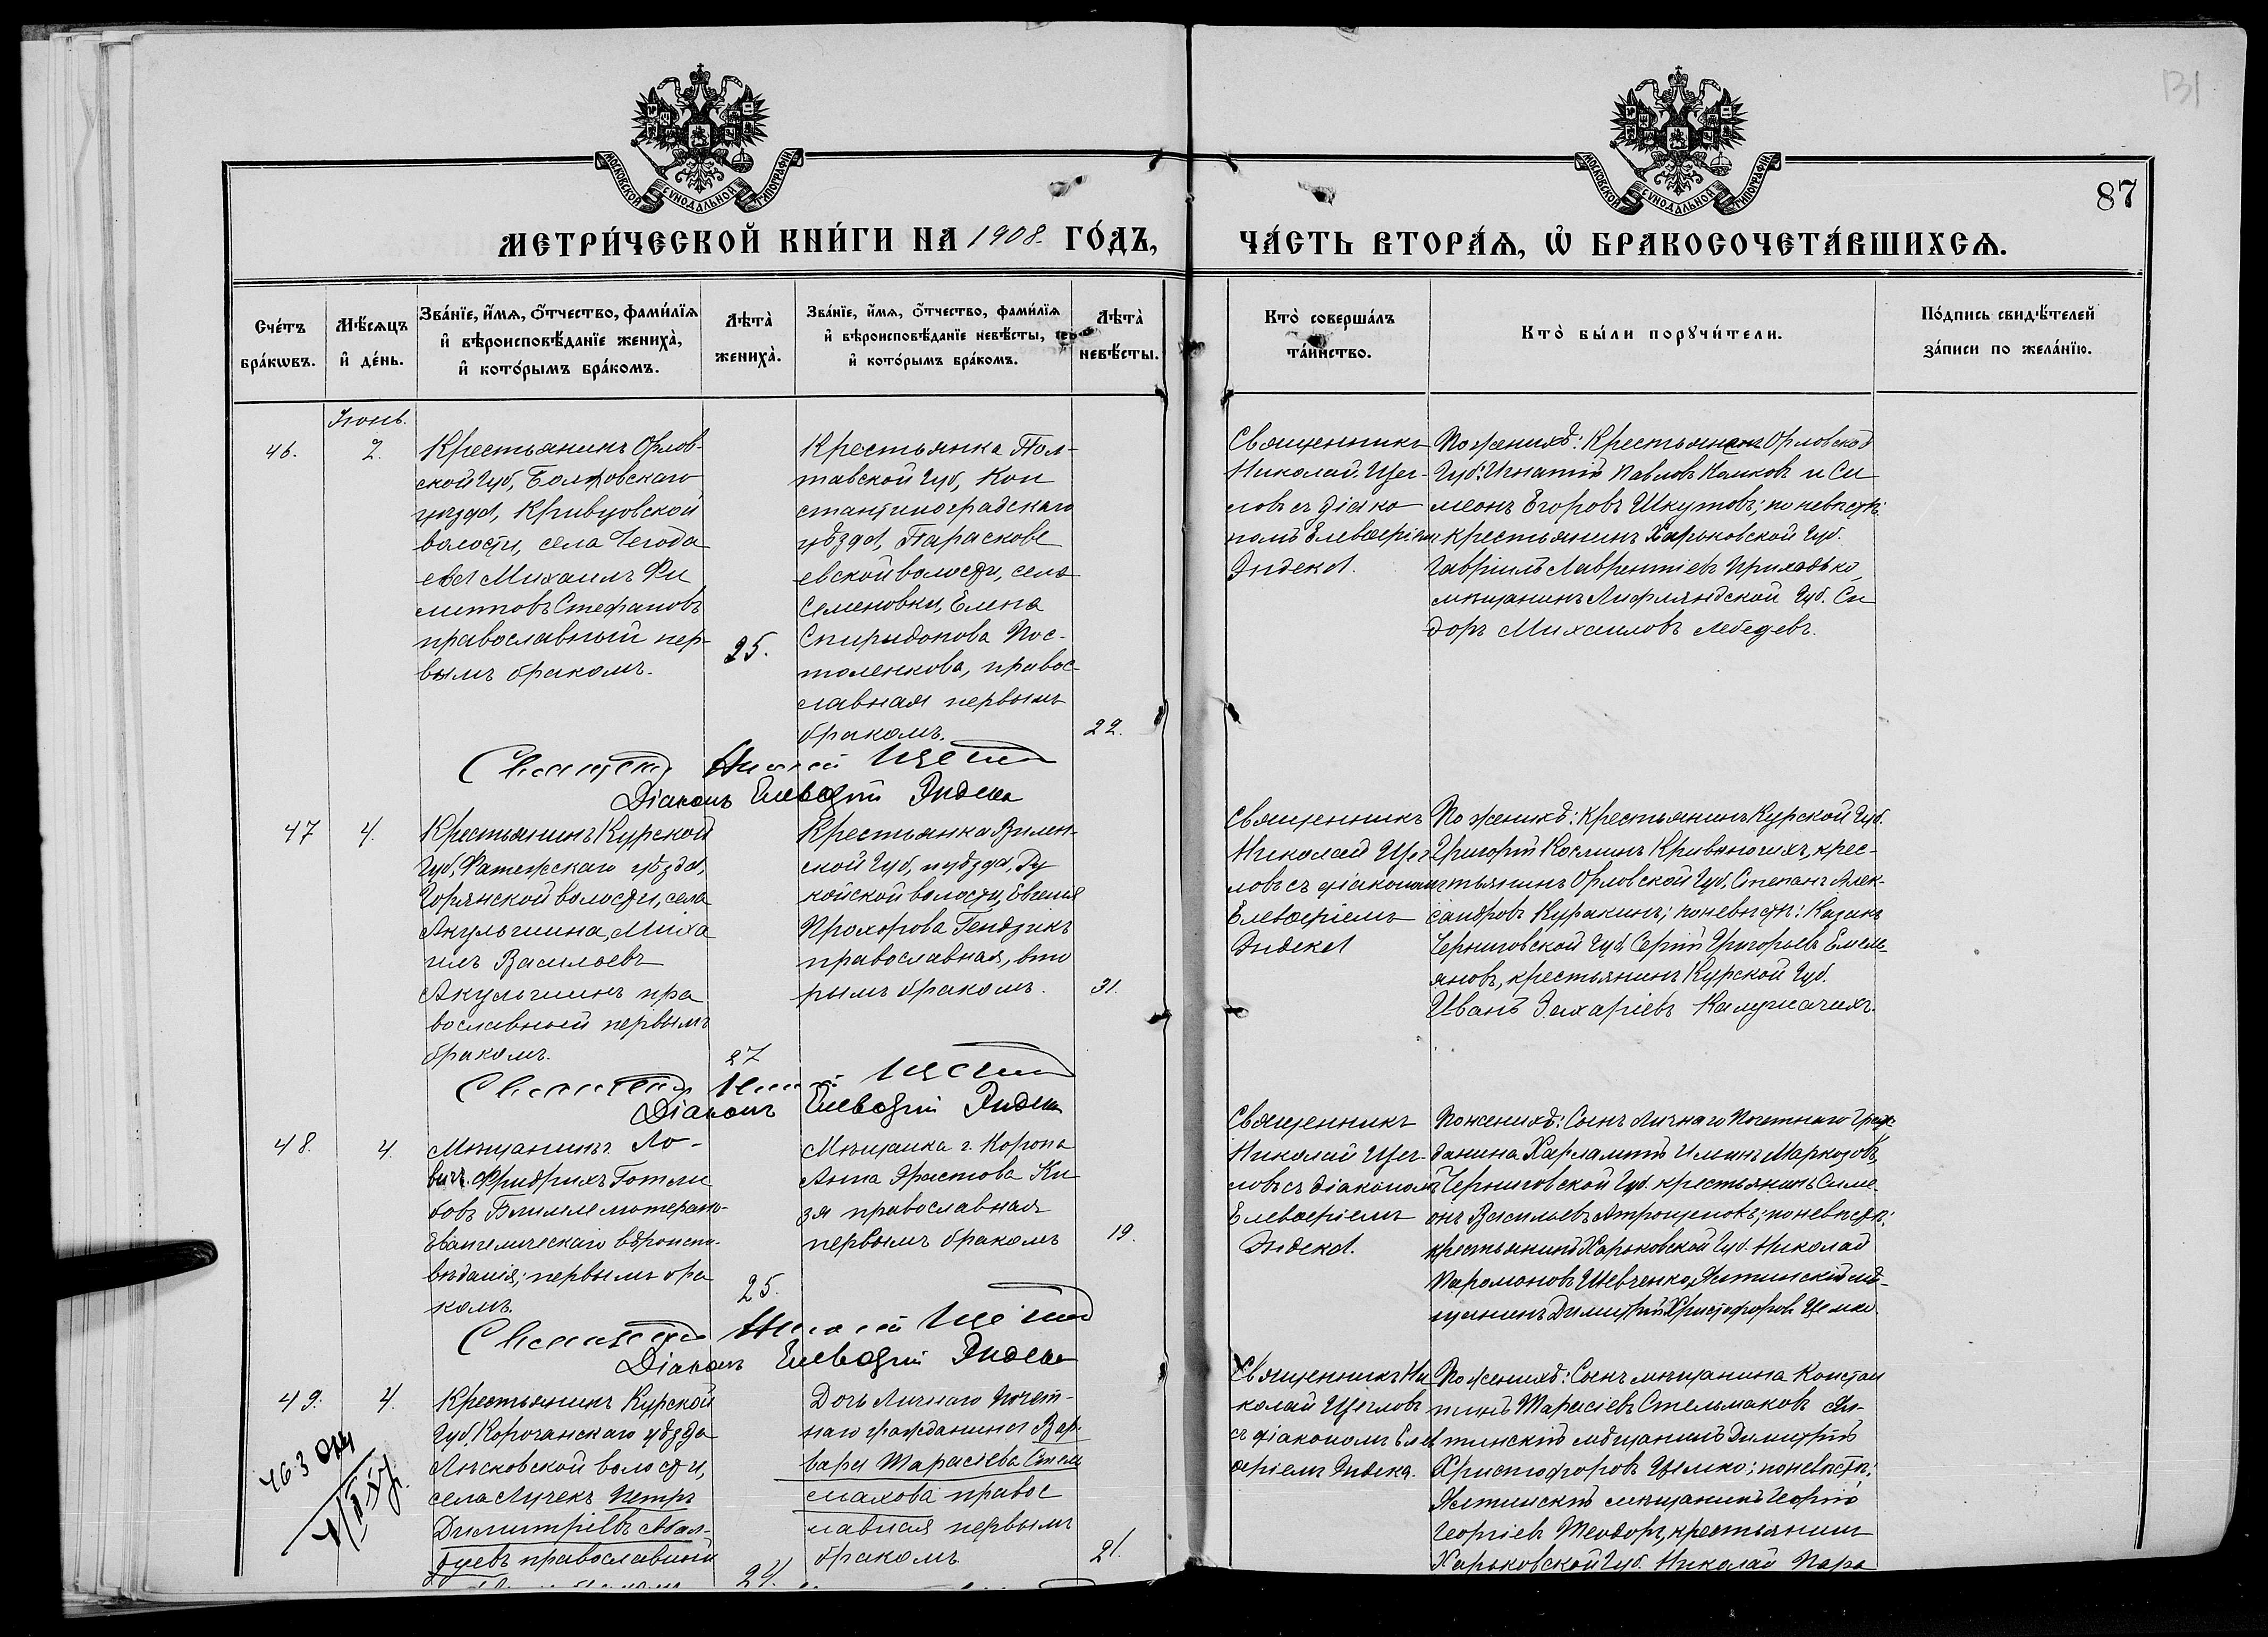 131
87
МОСКОВСКОЙ СѴНОДАЛЬНОЙ ТИПОГРАФІИ
МОСКОВСКОЙ СѴНОДАЛЬНОЙ ТИПОГРАФІИ
МЕТРИ́ЧЕСКОЙ КНИ́ГИ НА 1908. ГО́ДЪ,
ЧА́СТЬ ВТОРА́Ѧ, Ѡ҆ БРАКОСОЧЕТА́ВШИХСѦ.
Сче́тъ бра́кѡвъ.
Мѣ́сѧцъ и҆ де́нь.
Зва́нїе, и҆́мѧ, ѻ҆́тчество, фами́лїѧ
и҆ вѣроисповѣ́данїе жениха̀,
и҆ кото́рымъ бра́комъ.
Лѣта̀ жениха̀.
Зва́нїе, и҆́мѧ, ѻ҆́тчество, фами́лїѧ
и҆ вѣроисповѣ́данїе невѣ́сты,
и҆ кото́рымъ бра́комъ.
Лѣта̀ невѣ́сты.
Кто̀ соверша́лъ
та́инство.
Кто̀ бы́ли порꙋчи́тели.
По́дпись свидѣ́телей
за́писи по жела́нїю.
Іюнь.
46.
2.
Крестьянинъ Орлов-
ской Губ, Болховскаго
уѣзда, Кривцовской
волости, села Чегода
ева Михаилъ Фи
липповъ Стефановъ
православный пер-
вымъ бракомъ.
25.
Крестьянка Пол-
тавской Губ, Кон
стантиноградскаго
уѣзда, Параскове
евской волости, села
Семеновки, Елена
Спиридонова Пос-
толенкова, правос-
лавная первымъ
бракомъ.
22.
Священникъ
Николай Щег-
ловъ съ діако
номъ Елевѳеріемъ
Индека.
По женихѣ: Крестьянинъ Орловской
Губ. Игнатій Павловъ Колковъ и Си
меонъ Егоровъ Шкутовъ; по невѣстѣ:
крестьянинъ Харьковской Губ.
Гавріилъ Лаврентіевъ Приходько,
мѣщанинъ Лифляндской Губ. Си
доръ Михаиловъ Лебедевъ.
Священникъ Николай Щегловъ
Діаконъ Елевѳерій Индека
47
4.
Крестьянинъ Курской
Губ, Фатежскаго уѣзда,
волости, села
Акульшина, Миха
илъ Васильевъ
Акульшинъ пра
вославный первымъ
бракомъ.
27
Крестьянка Вилен-
ской Губ, и уѣзда,
волости, Евгенія
Прохорова Гендзикъ
православная, вто
рымъ бракомъ.
31.
Священникъ
Николай Щег-
ловъ съ діакономъ
Елевѳеріемъ
Индека
По женихѣ: крестьянинъ Курской Губ.
Григорій Косминъ Кривоногихъ, крес-
тьянинъ Орловской Губ, Степанъ Алек-
сандровъ Куракинъ; по невѣстѣ: Казакъ
Черниговской Губ, Сергій Григорьевъ Емель-
яновъ, крестьянинъ Курской Губ.
Иванъ Захаріевъ
Священникъ Николай Щегловъ
Діаконъ Елевѳерій Индека
48.
4.
Мѣщанинъ г. Ло-
вичъ Фридрихъ Готли
бовъ лютерано-
Евангелическаго вѣроиспо-
вѣданія; первымъ бра
комъ.
25.
Мѣщанка г. Коропа
Анна Ки
зя православная
первымъ бракомъ
19.
Священникъ
Николай Щег-
ловъ съ діакономъ
Елевѳеріемъ
Индека.
По женихѣ: Сынъ Личнаго Почетнаго Граж-
данина Харлампій Маркозовъ,
Черниговской Губ. крестьянинъ Симе-
онъ Васильевъ Атрощенковъ; по невѣстѣ:
крестьянинъ Харьковской Губ. Николай
Парамоновъ Шевченко, Ялтинскій мѣ-
щанинъ Димитрій Христофоровъ Целко.
Священникъ Николай Щегловъ
Діаконъ Елевѳерій Индека
49.
4.
Крестьянинъ Курской
Губ. Корочанскаго уѣзда
волости,
села Лучекъ Петръ
Димитріевъ
православный
24.
Дочь Личнаго Почет-
наго гражданина Вар-
вара Тарасіева Стель
махова правос
лавная первымъ
бракомъ
21.
Священникъ Ни
колай Щегловъ
съ діакономъ Елев
ѳеріемъ Индека.
По женихѣ: Сынъ мѣщанина Констан
тинъ Тарасіевъ Стельмаховъ Ял-
тинскій мѣщанинъ Димитрій
Христофоровъ Целко; по невѣстѣ:
Ялтинскій мѣщанинъ Георгій
Георгіевъ Теодоръ, крестьянинъ
Харьковской Губ. Николай Пара
463